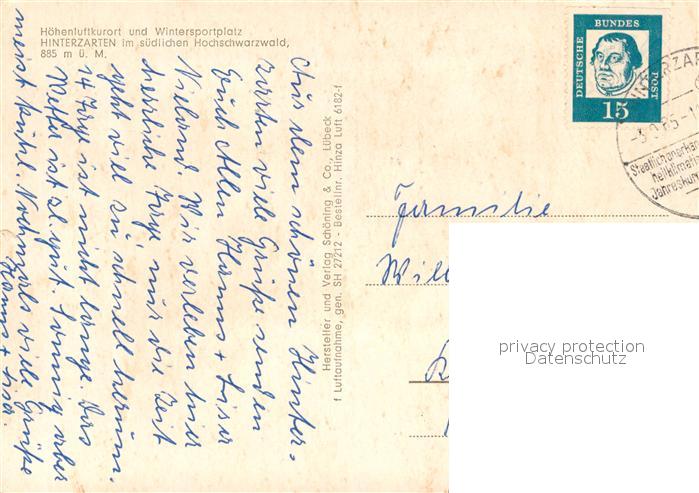 Höhenluftkurort und Wintersportplatz
HINTERZARTEN im südlichen Hochschwarzwald,
885 m ü. M.
Aus dem schönen Hinter-
zarten viele Grüße senden
Euch Allen Hanns + Liser
Nieland. Wir verleben hier
herrliche Tage, nur die Zeit
geht viel zu schnell herum.
14 Tage ist nicht lange. Das
Wetter ist zl. gut. Sonnig aber
meist kühl. Nochmals viele Grüße
Hanns + Liser.
Hersteller und Verlag Schöning & Co., Lübeck
f Luftaufnahme, gen. SH 27212 - Bestellnr. Hinza Luft 6182-f
DEUTSCHE BUNDES POST
15
HINTERZAR
Staatlich anerka
heilklimati
Jahreskur
Familie
Will
privacy protection
Datenschutz